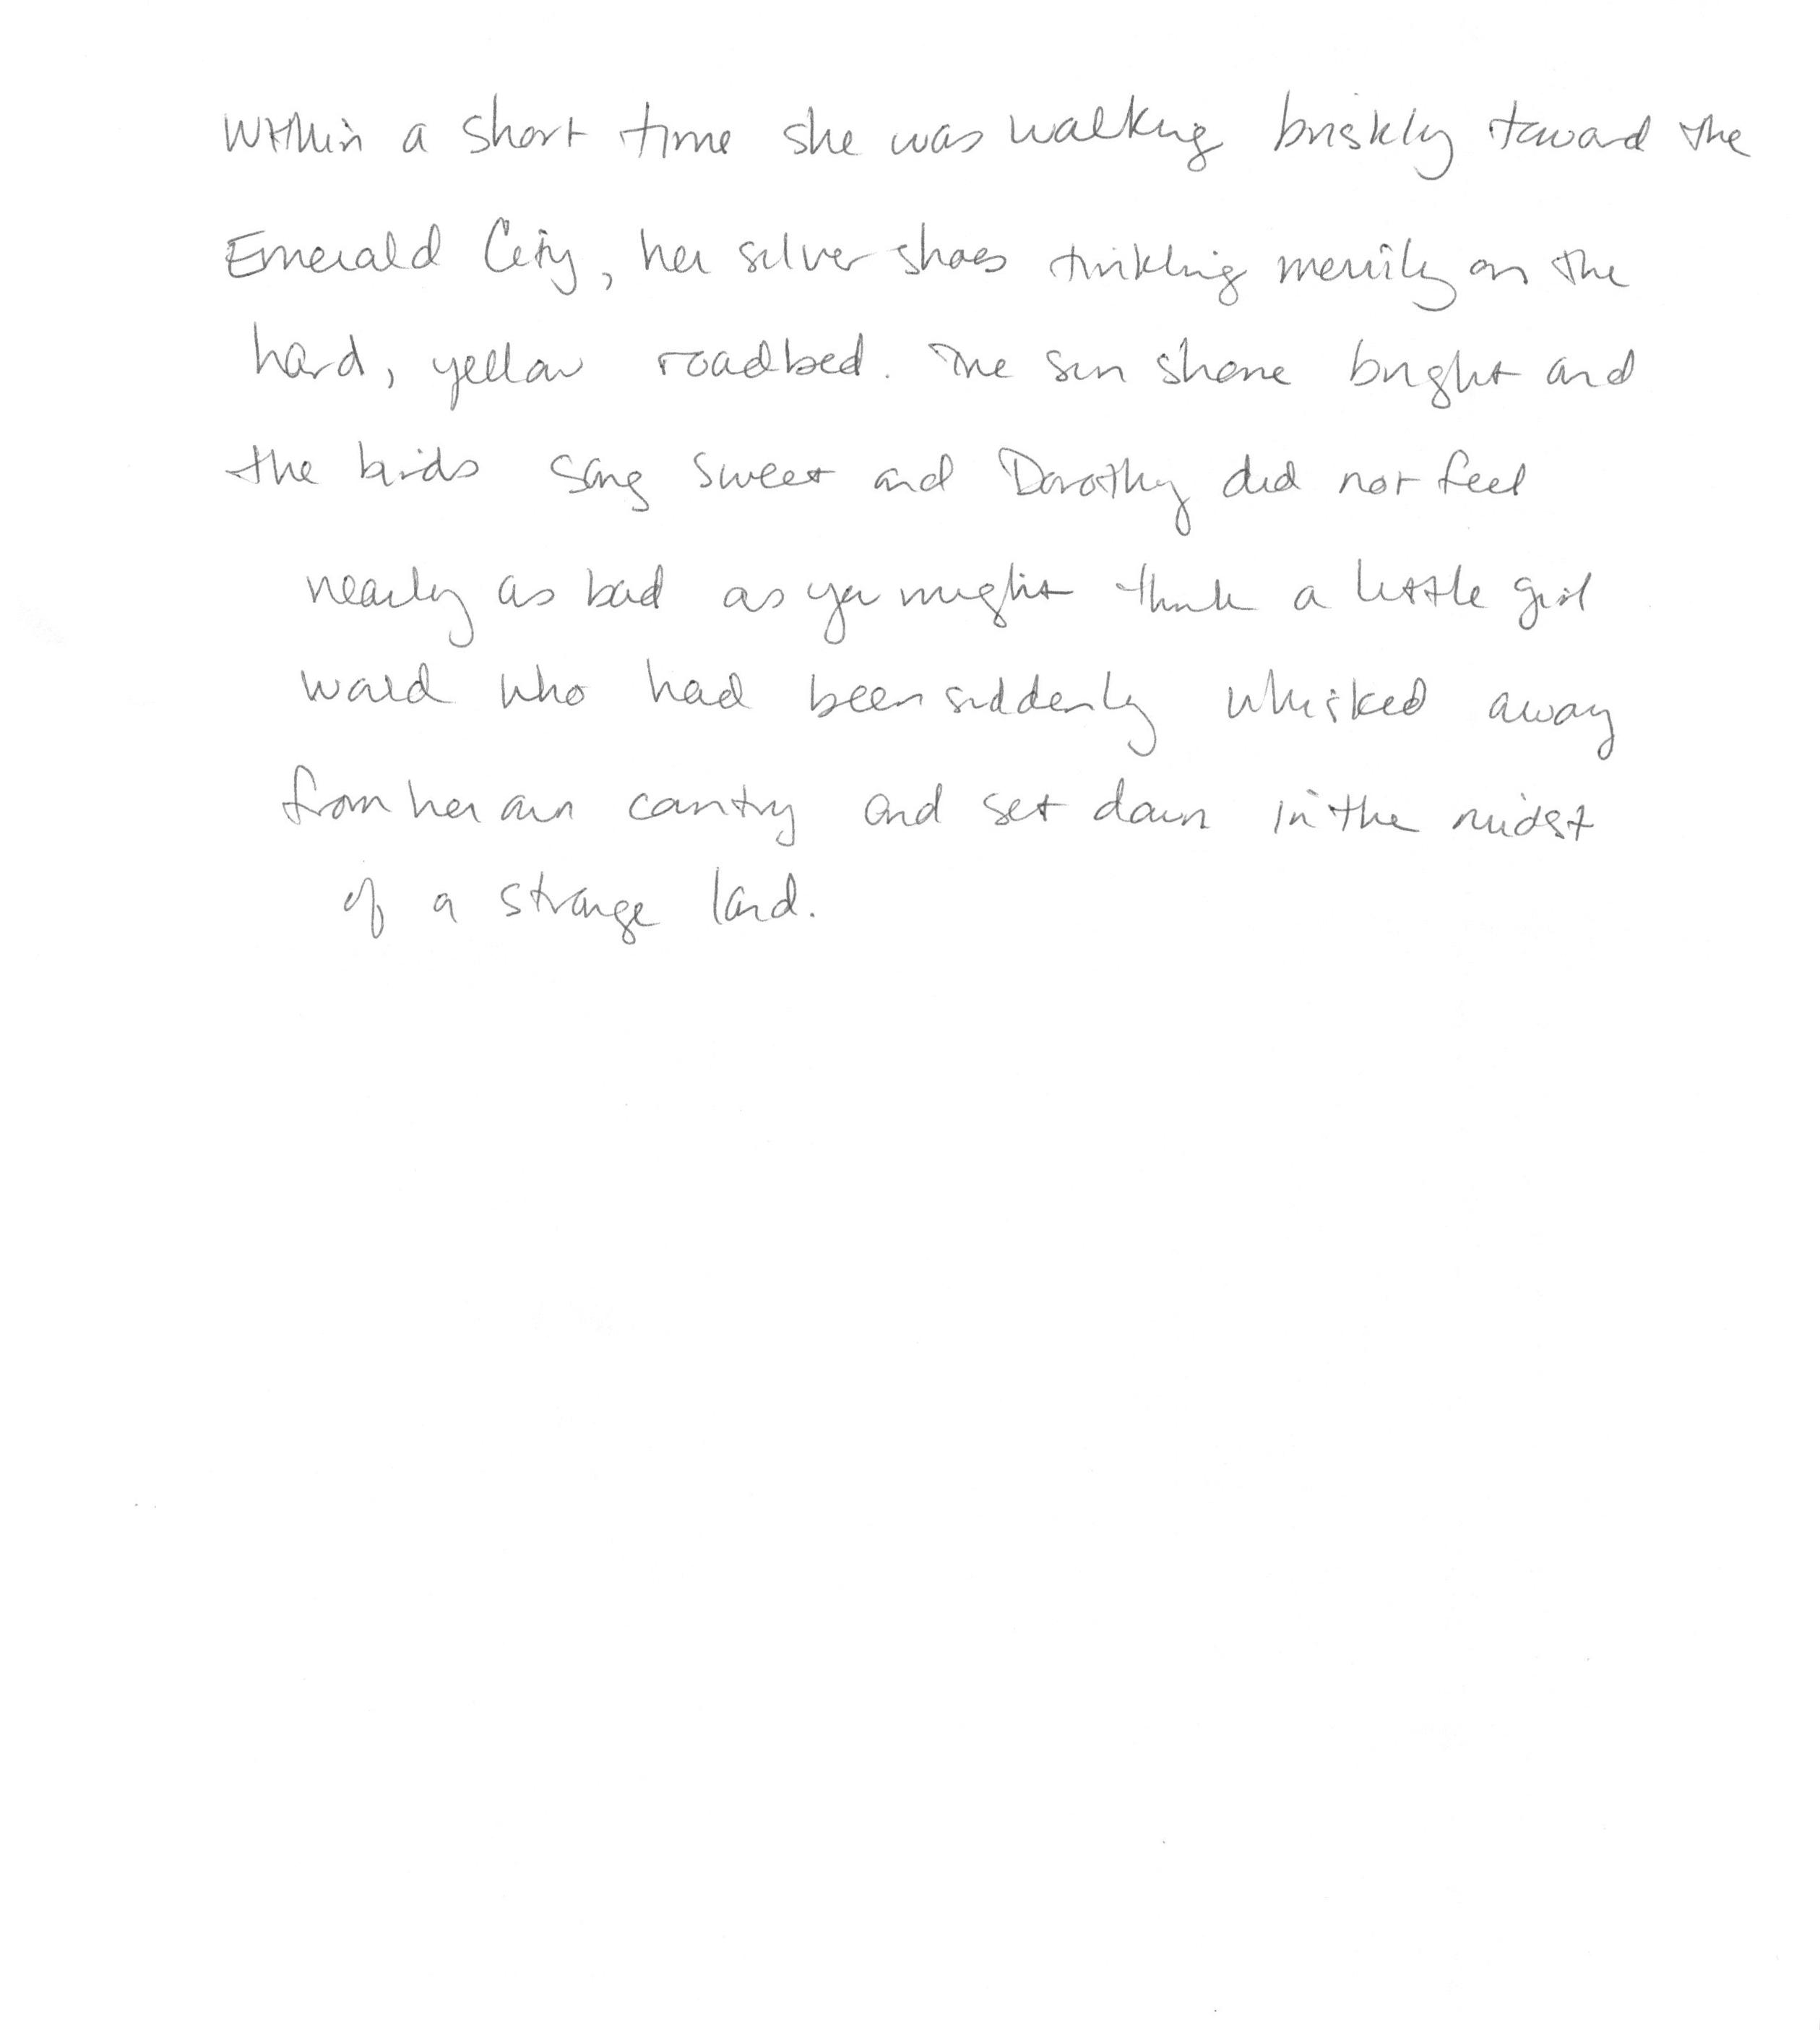 Within a short time she was walking briskly toward the
Emerald City, her silver shoes twinkling merrily on the
hard, yellow roadbed. The sun shone bright and
the birds sang sweet and Dorothy did not feel
nearly as bad as you might think a little girl
would who had been suddenly whisked away
from her own country and set down in the midst
of a strange land.